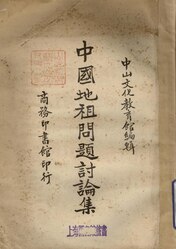 中山文化教育館編輯
中國地租問題討論集
商務印書館印行